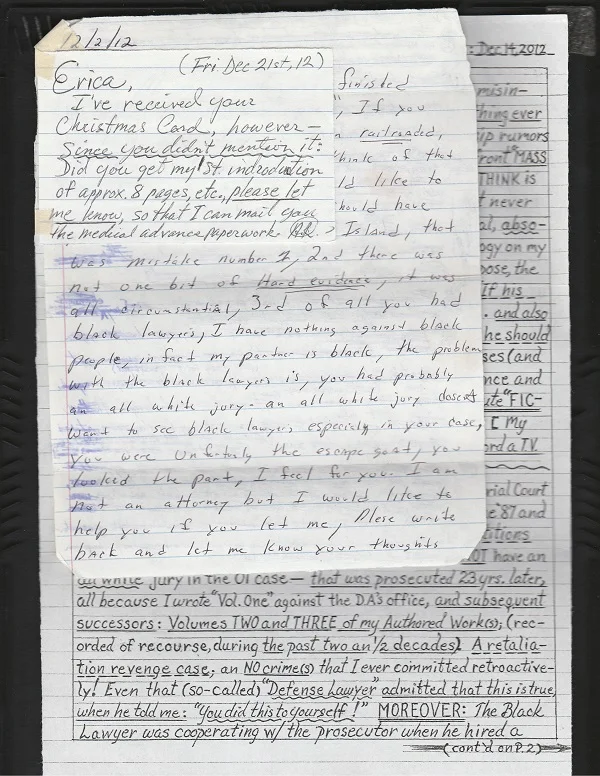 12/2/12
(Fri. Dec 21st, 12)
Erica,
I've received your
Christmas Card, however—
Since you didn't mention it:
Did you get my 1st introduction
of approx. 8 pages, etc., please let
me know, so that I can mail you
the medical advance paperwork.
finished
If you
railroaded,
think of that
ld like to
hould have
Island, that
was mistake number 1, 2nd there was
not one bit of Hard evidence, it was
all circumstantial, 3rd of all you had
black lawyers, I have nothing against black
people, in fact my partner is black, the problem
with the black lawyers is, you had probably
an all white jury. an all white jury doesnt
want to see black lawyers especially in your case,
you were unfortnly the escape goat, you
looked the part, I feel for you. I am
not an attorney but I would like to
help you if you let me, Plese write
back and let me know your thoughts
: Dec 14, 2012
misin-
hing ever
up rumors
front "MASS
THINK is
t never
al, abso-
ogy on my
pose, the
If his
. and also
he should
ses (and
nce and
ute "FIC-
[ My
ord a T.V.
rial Court
e '87 and
titions
NOT have an
all white jury in the O1 case— that was prosecuted 23 yrs. later,
all because I wrote "Vol. One" against the D.A.'s office, and subsequent
successors: Volumes TWO and THREE of my Authored Work(s); (rec-
orded of recourse, during the past two an' 1/2 decades). A retalia-
tion revenge case; an NO crime(s) that I ever committed retroactive-
ly! Even that (so-called) "Defense Lawyer" admitted that this is true,
when he told me: "You did this to yourself!" MOREOVER: The Black
Lawyer was cooperating w/ the prosecutor when he hired a
(cont'd on P. 2)